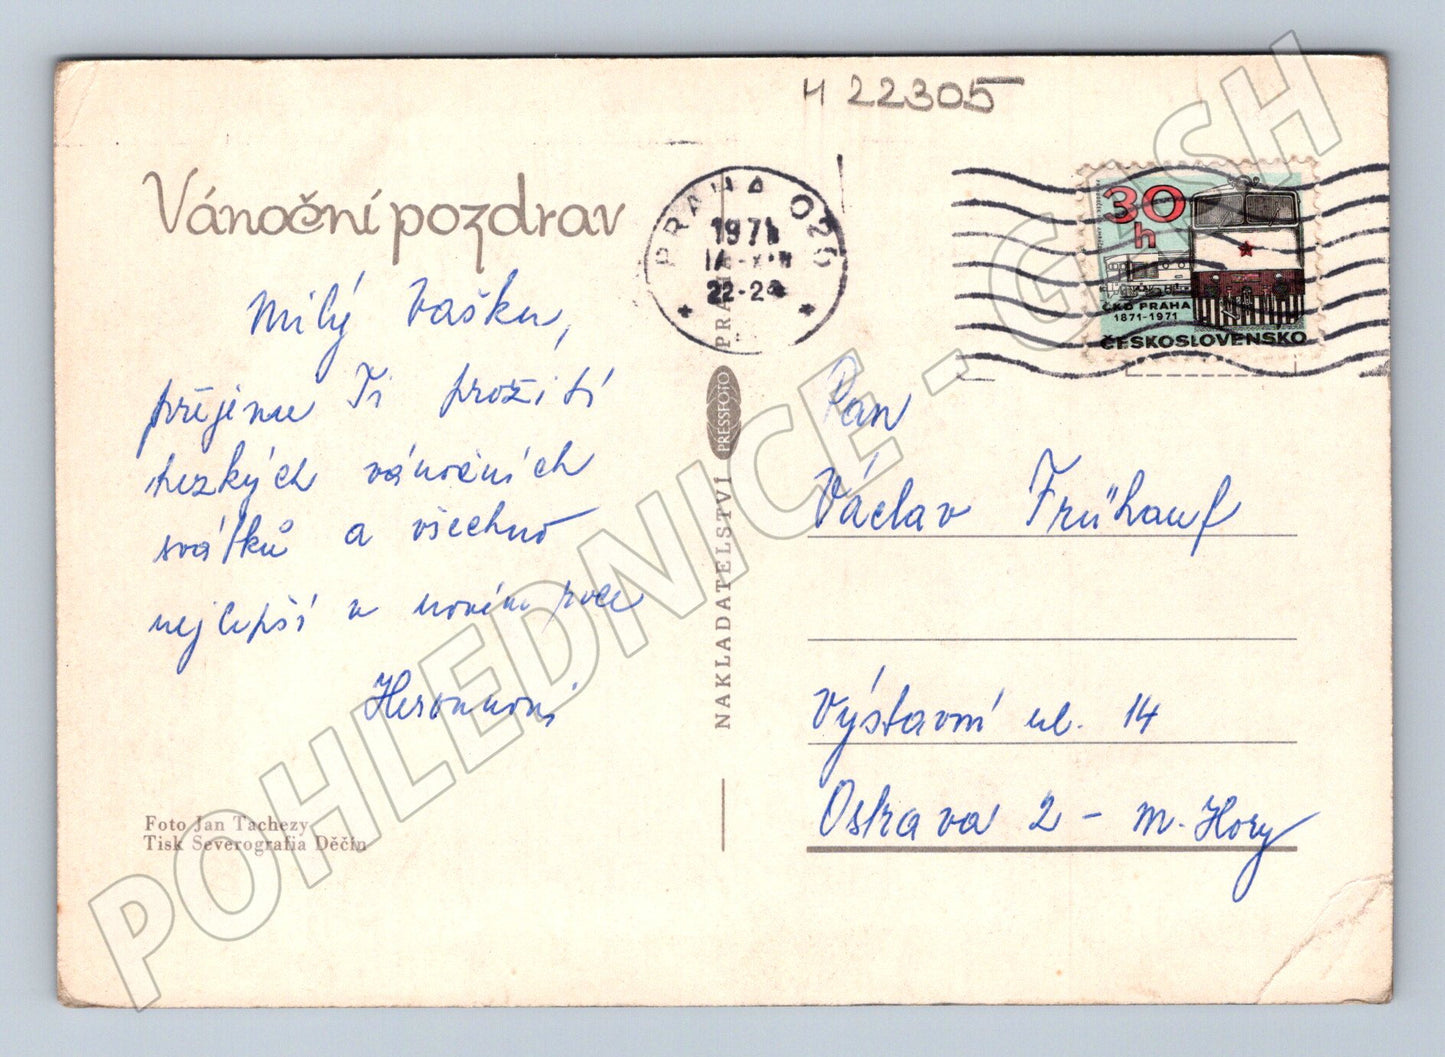 H 22305
Vánoční pozdrav
PRAHA 025
1971
22-24
30
h
ČKD PRAHA
1871-1971
ČESKOSLOVENSKO
Milý Vašku,
přejeme Ti prožití
hezkých vánočních
svátků a všechno
nejlepší v novém roce
Foto Jan Tachezy
Tisk Severografia Děčín
NAKLADATELSTVÍ PRESSFOTO PRAHA
Pan
Václav Frühauf
Výstavní ul. 14
Ostrava 2 - M. Hory
POHLEDNICE - G